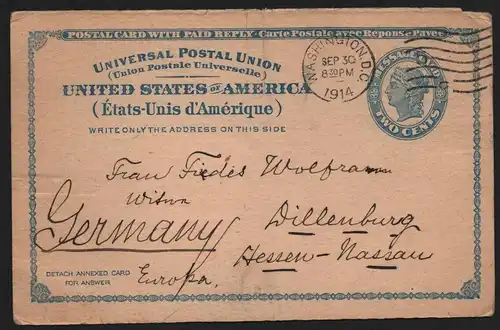 POSTAL CARD WITH PAID REPLY.-Carte Postale avec Réponse Payée.
UNIVERSAL POSTAL UNION
(Union Postale Universelle)
UNITED STATES OF AMERICA
(États-Unis d'Amérique)
WRITE ONLY THE ADDRESS ON THIS SIDE
WASHINGTON, D.C.
SEP 30
PM
1914
MESSAGE CARD
TWO CENTS
Frau Wolfram
Witwe
Dillenburg
Germany
Hessen-Nassau
Europa.
DETACH ANNEXED CARD
FOR ANSWER